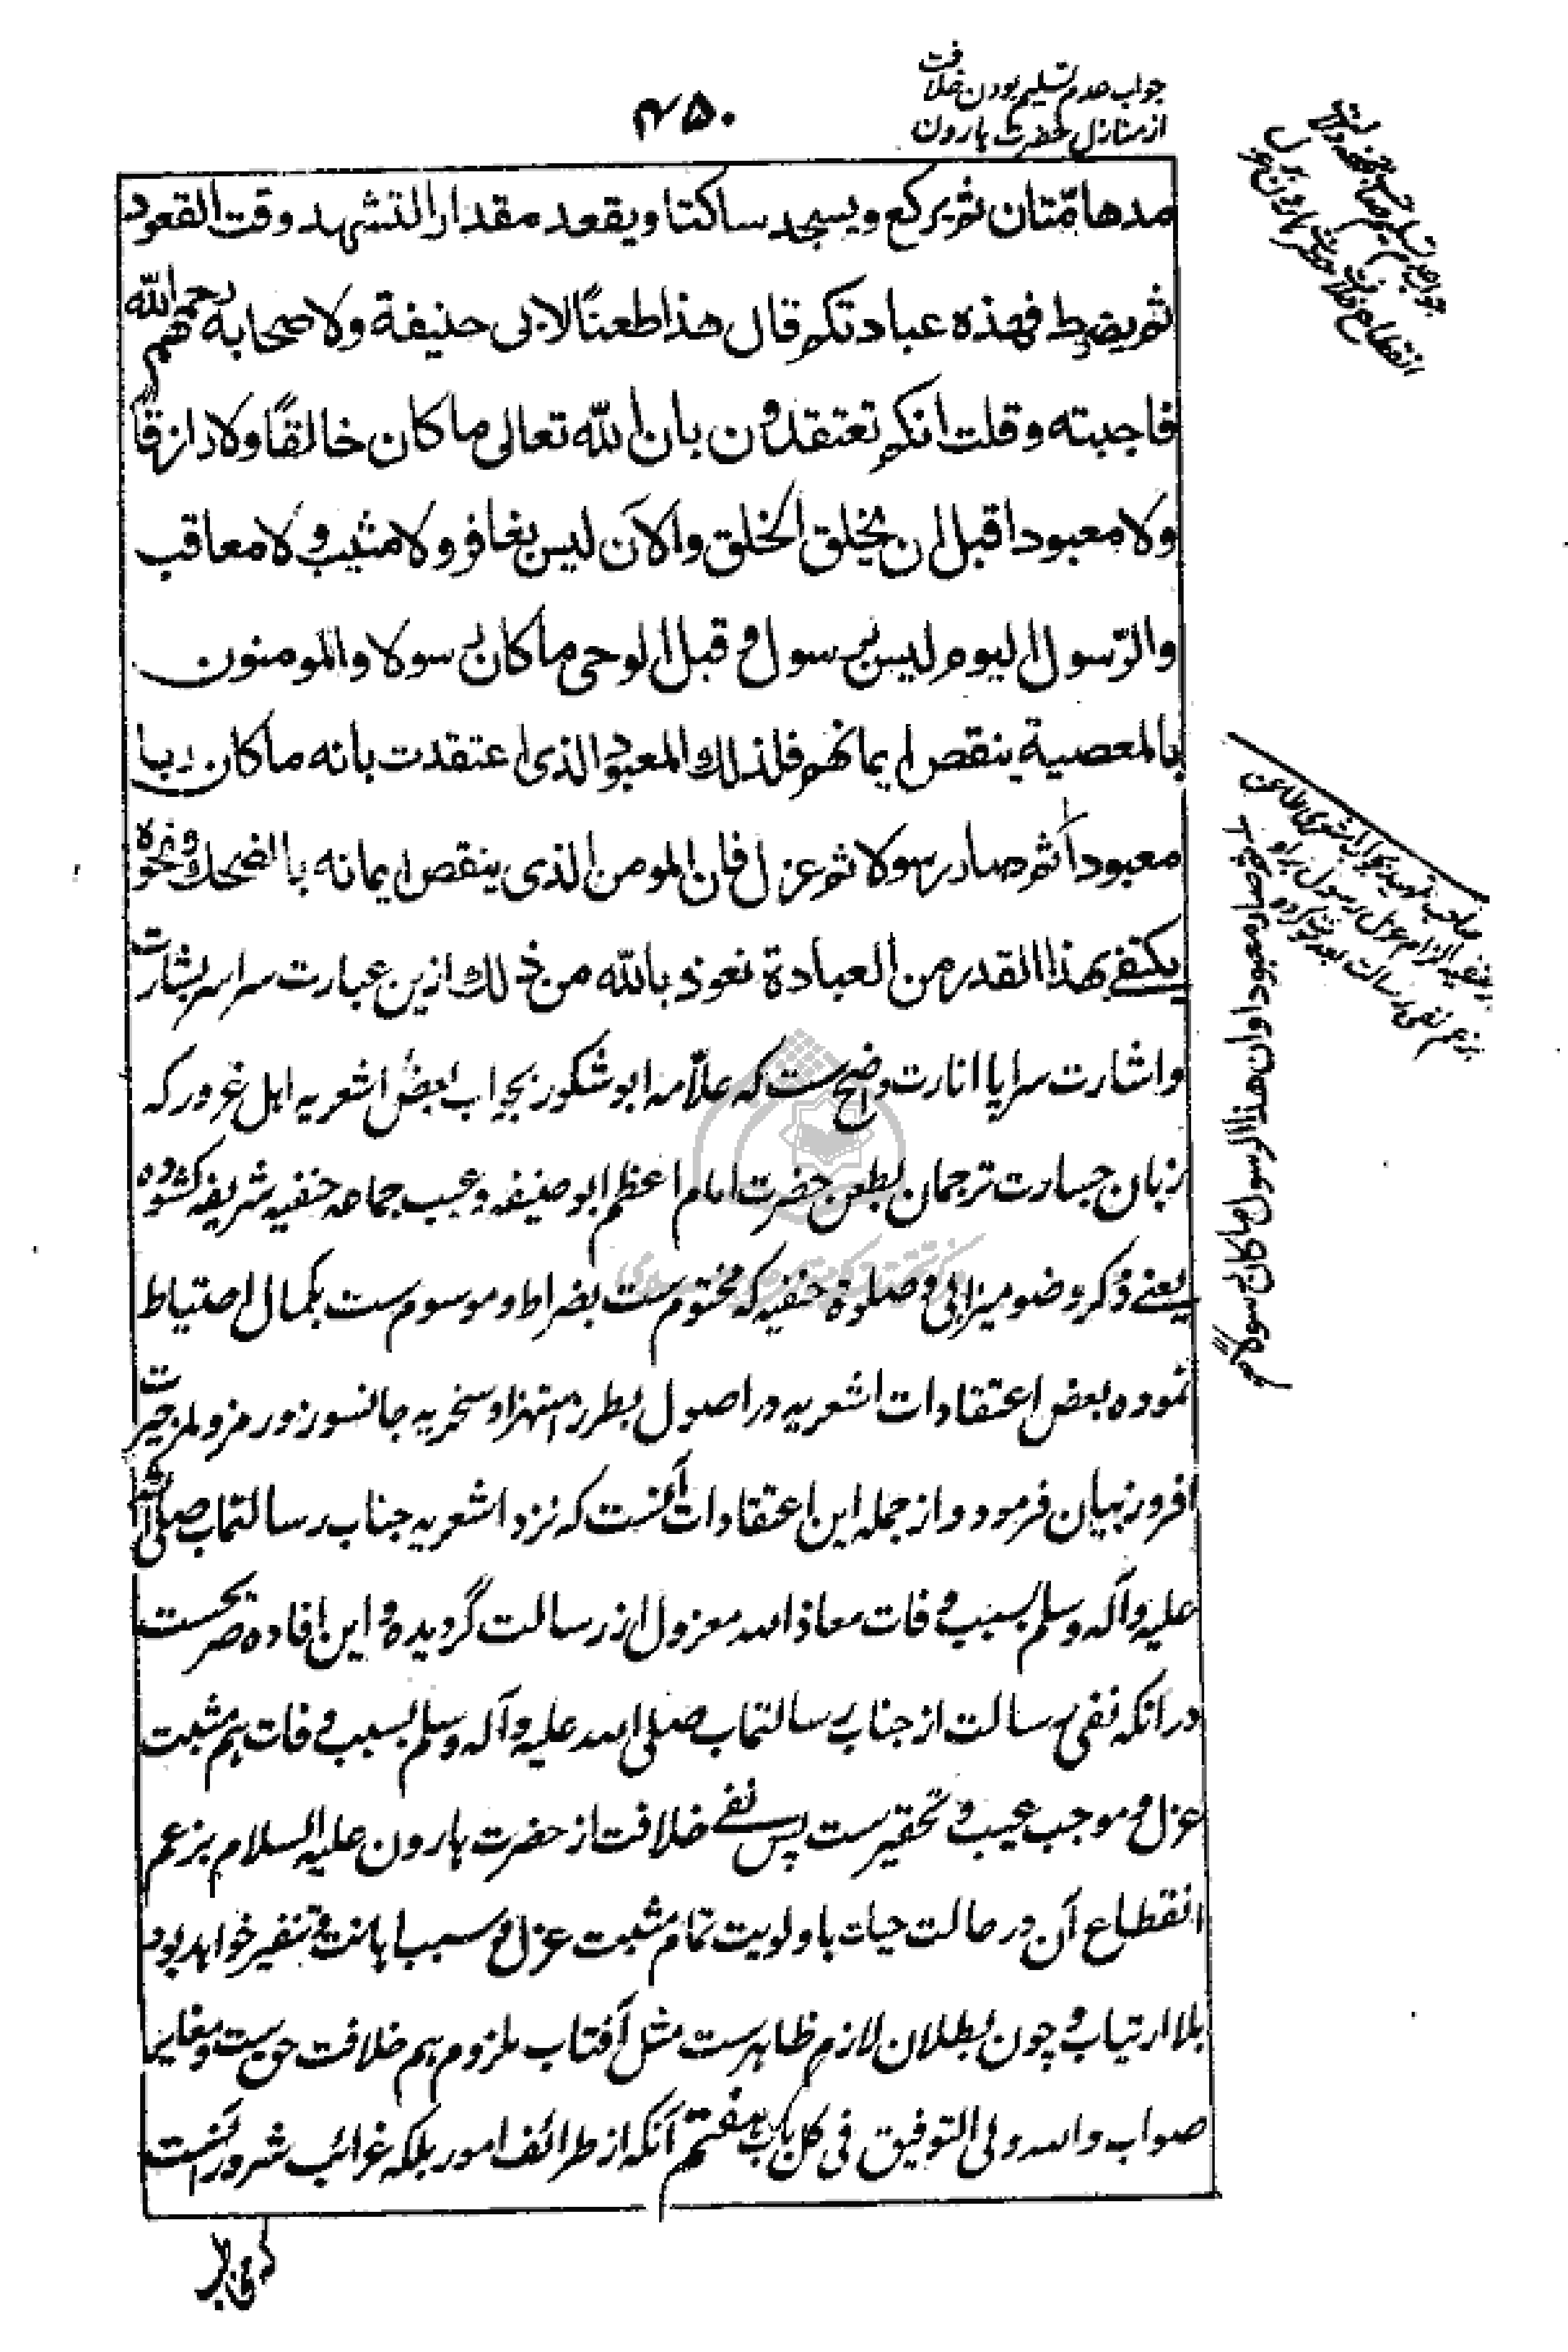 جواب عدم تسلیم بودن خلافت
از منازل حضرت هارون
۴۵۰
مدهامّتان ثم يركع ويسجد ساكتا ويقعد مقدار التشهد وقت القعود
ثم يضرط فهذه عبادتكم قال هذا طعنًا لابی حنيفة ولاصحابه رحمهم الله
فاجبته وقلت انكم تعتقدون بان الله تعالی ما كان خالقًا ولا رازقًا
ولا معبودا قبل ان يخلق الخلق والآن ليس بغافر ولا مثيب ولا معاقب
والرّسول اليوم ليس برسول و قبل الوحی ما كان رسولا والمومنون
بالمعصية ينقص ايمانهم فلذلك المعبود الذی اعتقدت بانه ما كان ربا
معبوداً ثم صار رسولا ثم عزل فان المومن الذی ينقص ايمانه بالضحك ونحوه
يكتفے بهذا القدر من العبادة نعوذ بالله من ذلك ازین عبارت سراسر بشارت
واشارت سراپا انارت واضح ست که علّامه ابو شکور بجواب بعض اشعریه اهل غرور که
زبان جسارت ترجمان بطعن حضرت امام اعظم ابو حنیفه و عیب جماعه حنفیه شریفه کشوده
یعنے ذکر وضو میزابی و صلوة حنفیه که مختوم ست بضراط و موسوم ست بکمال احتیاط
نموده بعض اعتقادات اشعریه در اصول بطرز استهزا و سخریه جانسوز و رمز و لمز حیرت
افروز بیان فرموده و از جمله این اعتقادات آنست که نزد اشعریه جناب رسالتماب صلی الله
علیه و آله و سلم بسبب وفات معاذ الله معزول از رسالت گردیده و این افاده صریحست
در انکه نفی رسالت از جناب رسالتماب صلی الله علیه و آله و سلم بسبب وفات هم مثبت
عزل و موجب عیب و تحقیرست پس نفے خلافت از حضرت هارون علیه السلام بزعم
انقطاع آن در حالت حیات باولویت تمام مثبت عزل و سبب اهانت و تنفیر خواهد بود
بلا ارتیاب و چون بطلان لازم ظاهرست مثل آفتاب ملزوم هم خلاف حق ست و مغایر
صواب والله ولی التوفیق فی كل باب هفتم آنکه از طرائف امور بلکه غرائب شرور آنست
صار معبودا وان هذا الرسول ما كان رسولا